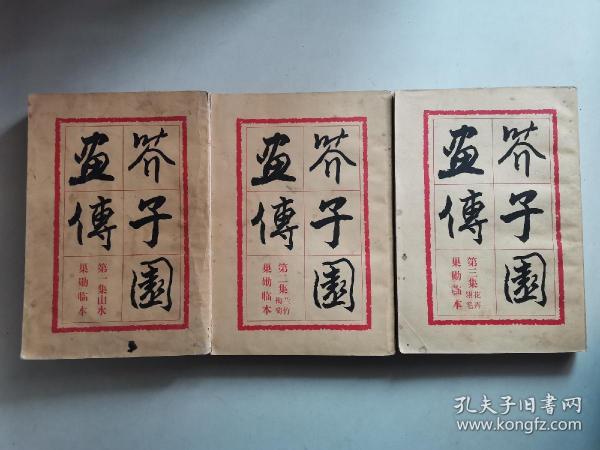 芥子園
畫傳
第一集山水
巢勋临本
芥子園
畫傳
第二集兰竹梅菊
巢勋临本
芥子園
畫傳
第三集花卉翎毛
巢勋临本
孔夫子旧书网
www.kongfz.com